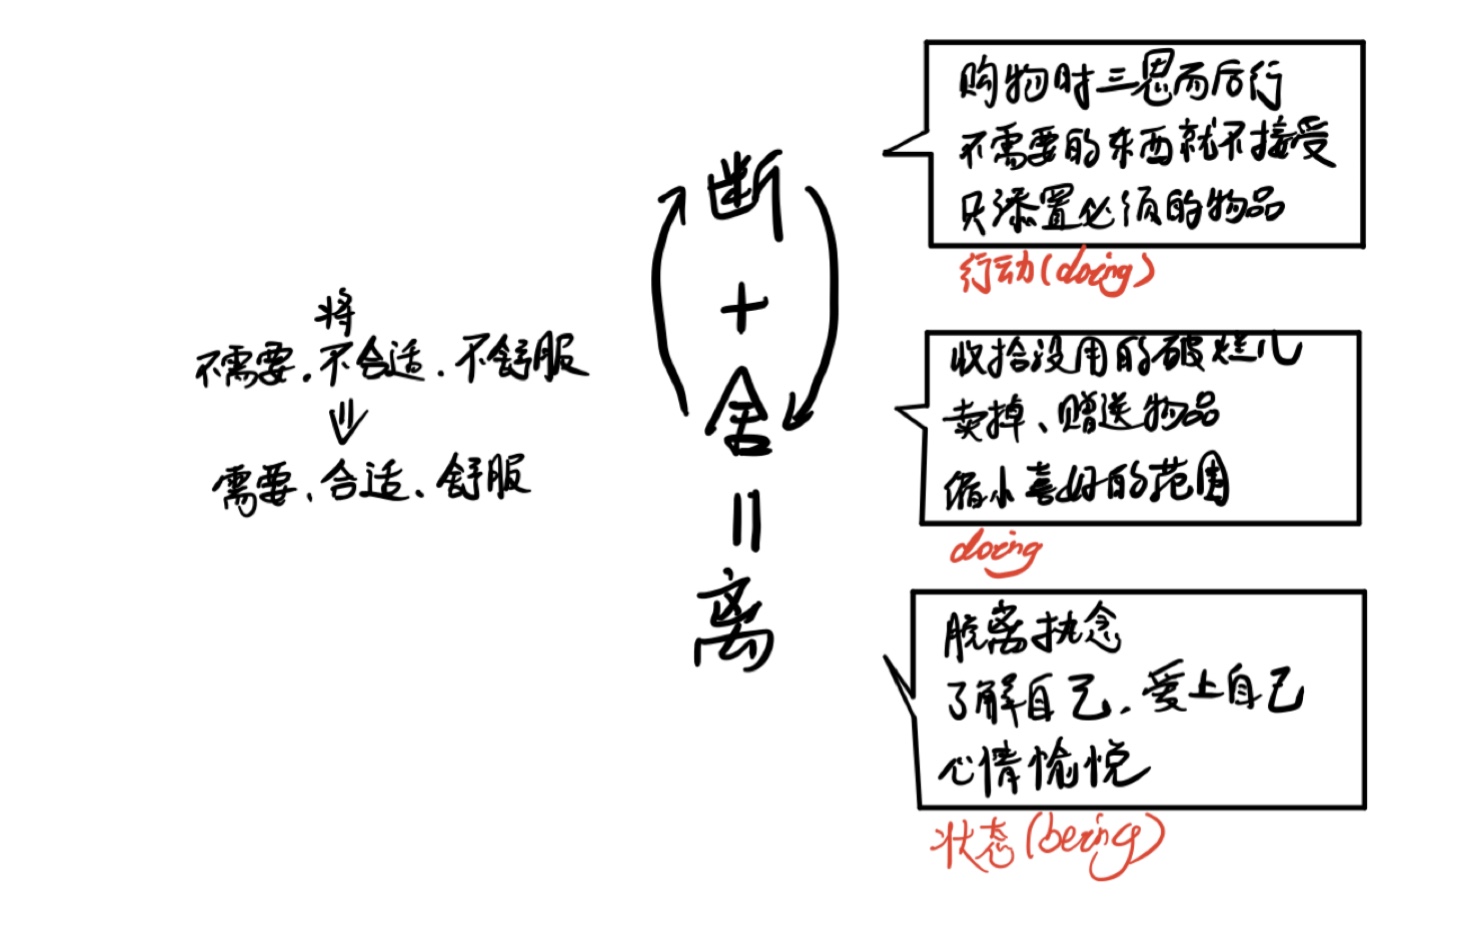 将
不需要、不合适、不舒服
⇓
需要、合适、舒服
断
+
舍
=
离
购物时三思而后行
不需要的东西就不接受
只添置必须的物品
行动(doing)
收拾没用的破烂儿
卖掉、赠送物品
缩小喜好的范围
doing
脱离执念
了解自己、爱上自己
心情愉悦
状态(being)